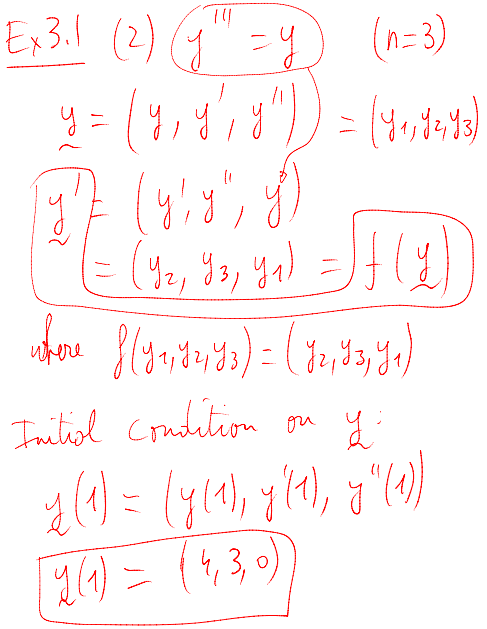 Ex 3.1 (2) y''' = y (n=3)
y = (y, y', y'') = (y1, y2, y3)
y' = (y', y'', y)
= (y2, y3, y1) = f(y)
where f(y1, y2, y3) = (y2, y3, y1)
Initial condition on y:
y(1) = (y(1), y'(1), y''(1))
y(1) = (4, 3, 0)